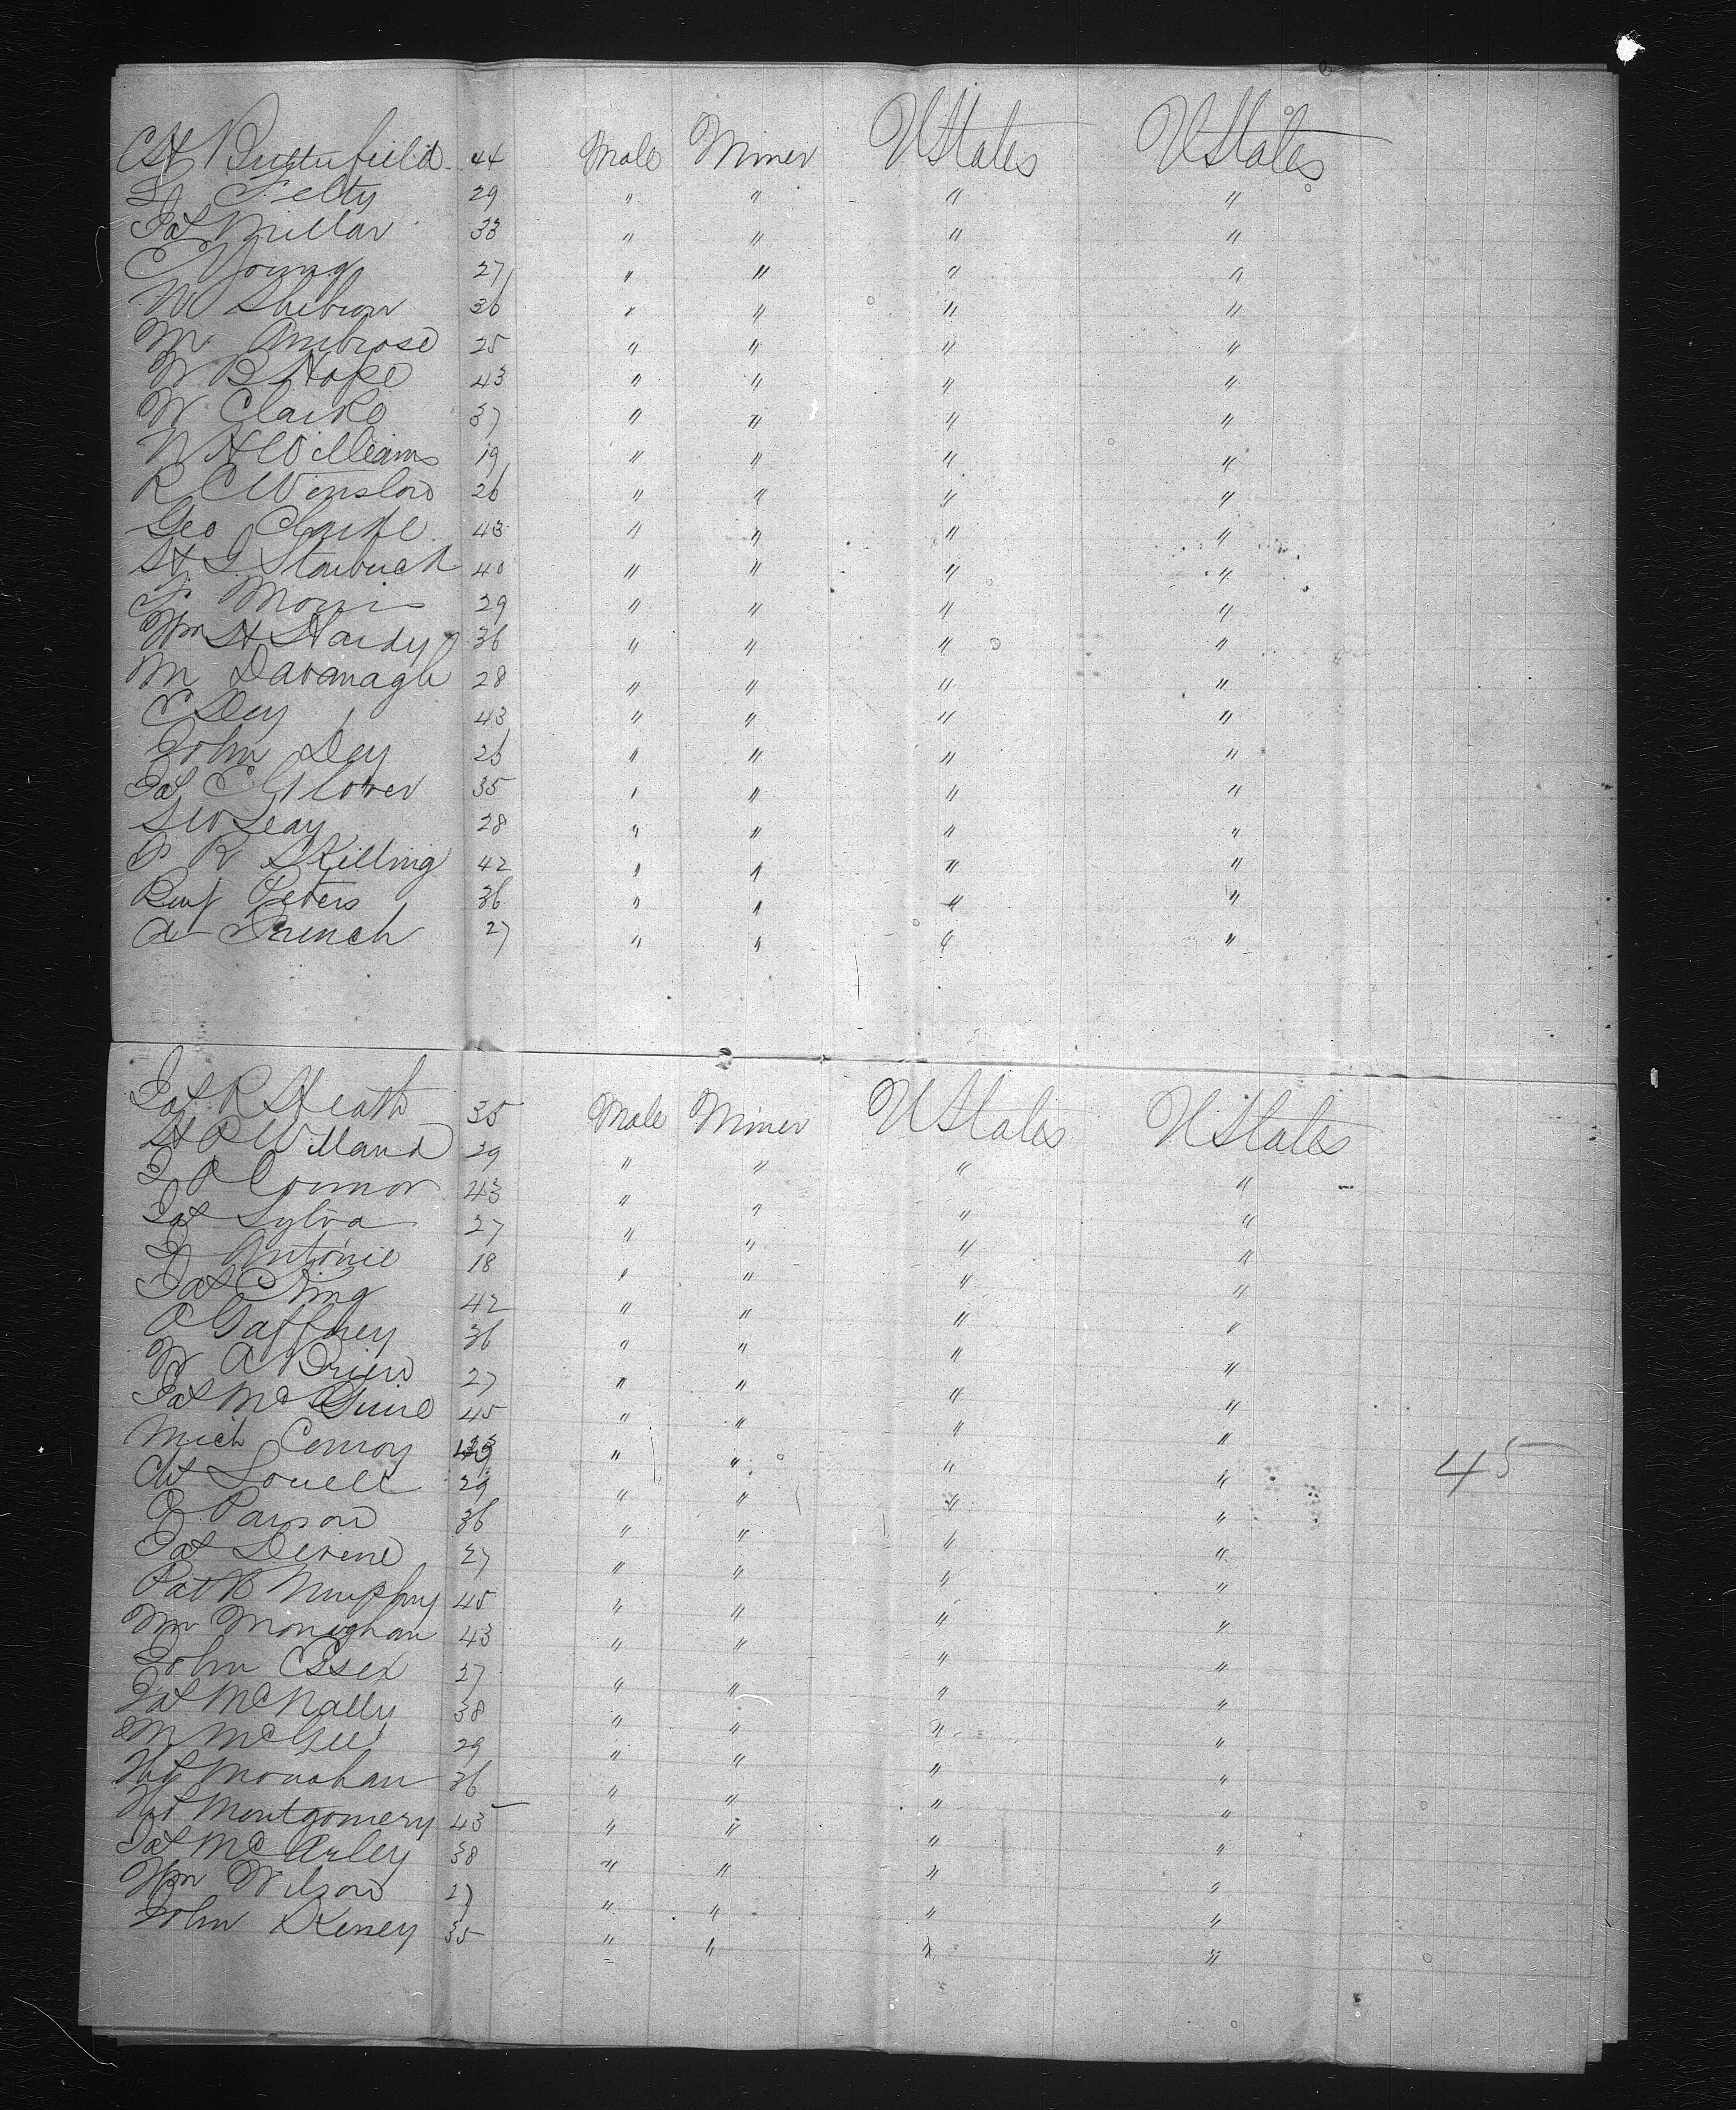 CH Butterfield 44 Male Miner UStates UStates
J Felty 29 " " " "
Jas Millar 33 " " " "
C Young 27 " " " "
M Shebron 36 " " " "
M Ambrose 25 " " " "
W B Hope 43 " " " "
W Clarke 37 " " " "
W H Williams 19 " " " "
R C Winslow 26 " " " "
Geo Clarke 43 " " " "
H I Starbuck 40 " " " "
J Morris 29 " " " "
Wm H Hardy 36 " " " "
M Davanagh 28 " " " "
C Dey 43 " " " "
John Dey 26 " " " "
Jas C Glover 35 " " " "
S W Seay 28 " " " "
P R Skilling 42 " " " "
Benj Peters 36 " " " "
A French 27 " " " "
Jas R Heath 35 Male Miner UStates UStates
H P Willand 29 " " " "
J O Connor 43 " " " "
Jas Sylva 27 " " " "
J Antonie 18 " " " "
Jas C King 42 " " " "
O Gaffney 36 " " " "
W O Brien 27 " " " "
Jas McGuire 45 " " " "
Mich Conroy " " " "
Cht Lovell 29 " " " " 45
J Parson 36 " " " "
Jas Devene 27 " " " "
Patk Murphy 45 " " " "
Wm Monaghan 43 " " " "
John Essex 27 " " " "
Jas McNally 38 " " " "
M McGee 29 " " " "
Monahan 36 " " " "
Montgomery 43 " " " "
Jas McCurley 38 " " " "
Wm Wilson 27 " " " "
John Keney 35 " " " "